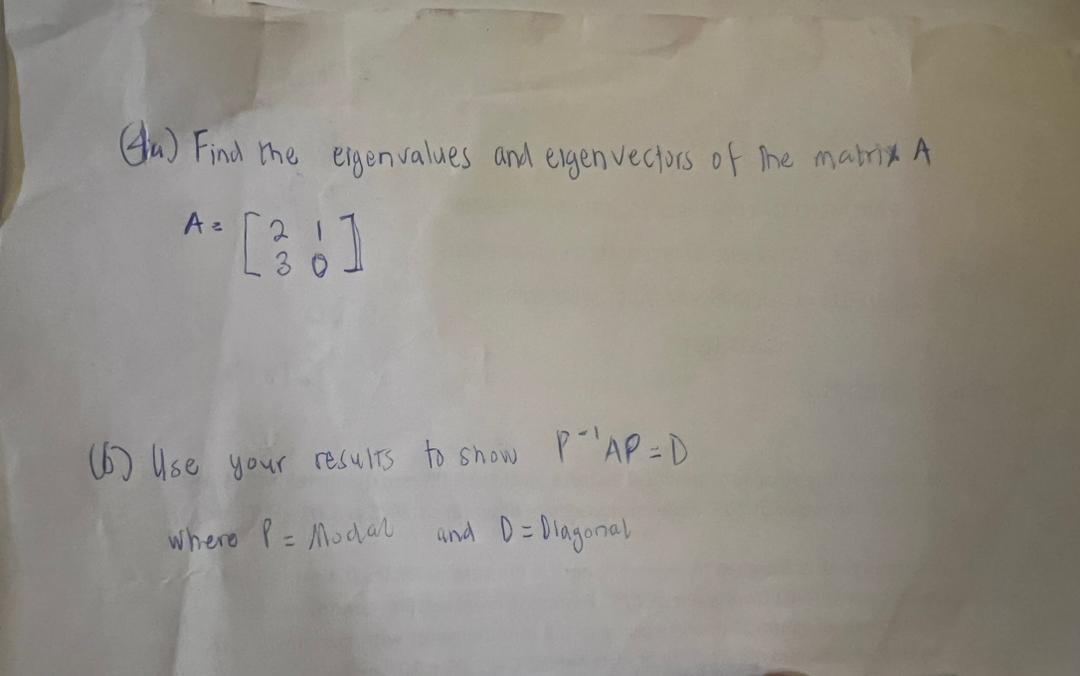 (4a) Find the eigenvalues and eigenvectors of the matrix A
A = [2 1
3 0]
(b) Use your results to show P⁻¹AP = D
where P = Modal and D = Diagonal